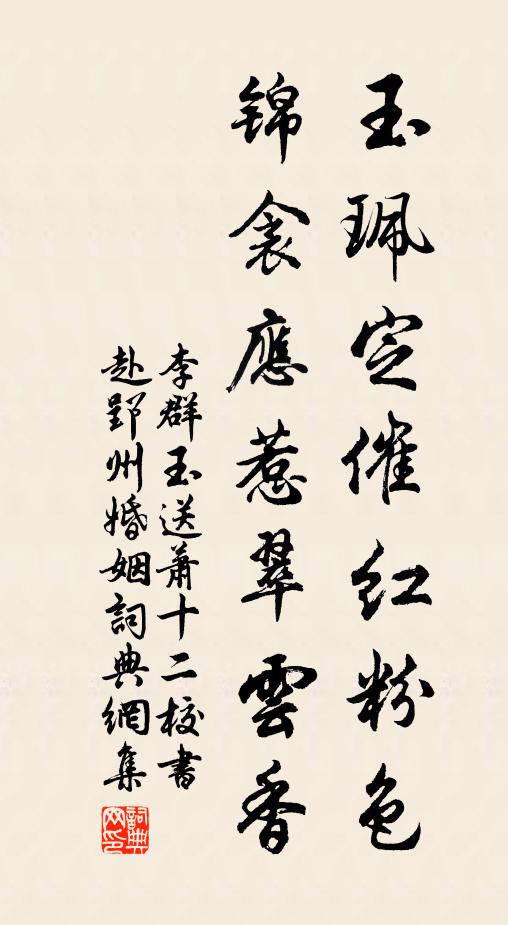 玉珮定催红粉色
锦衾應惹翠雲香
李群玉送萧十二校書
赴郢州婚姻詞典網集
詞典
网印